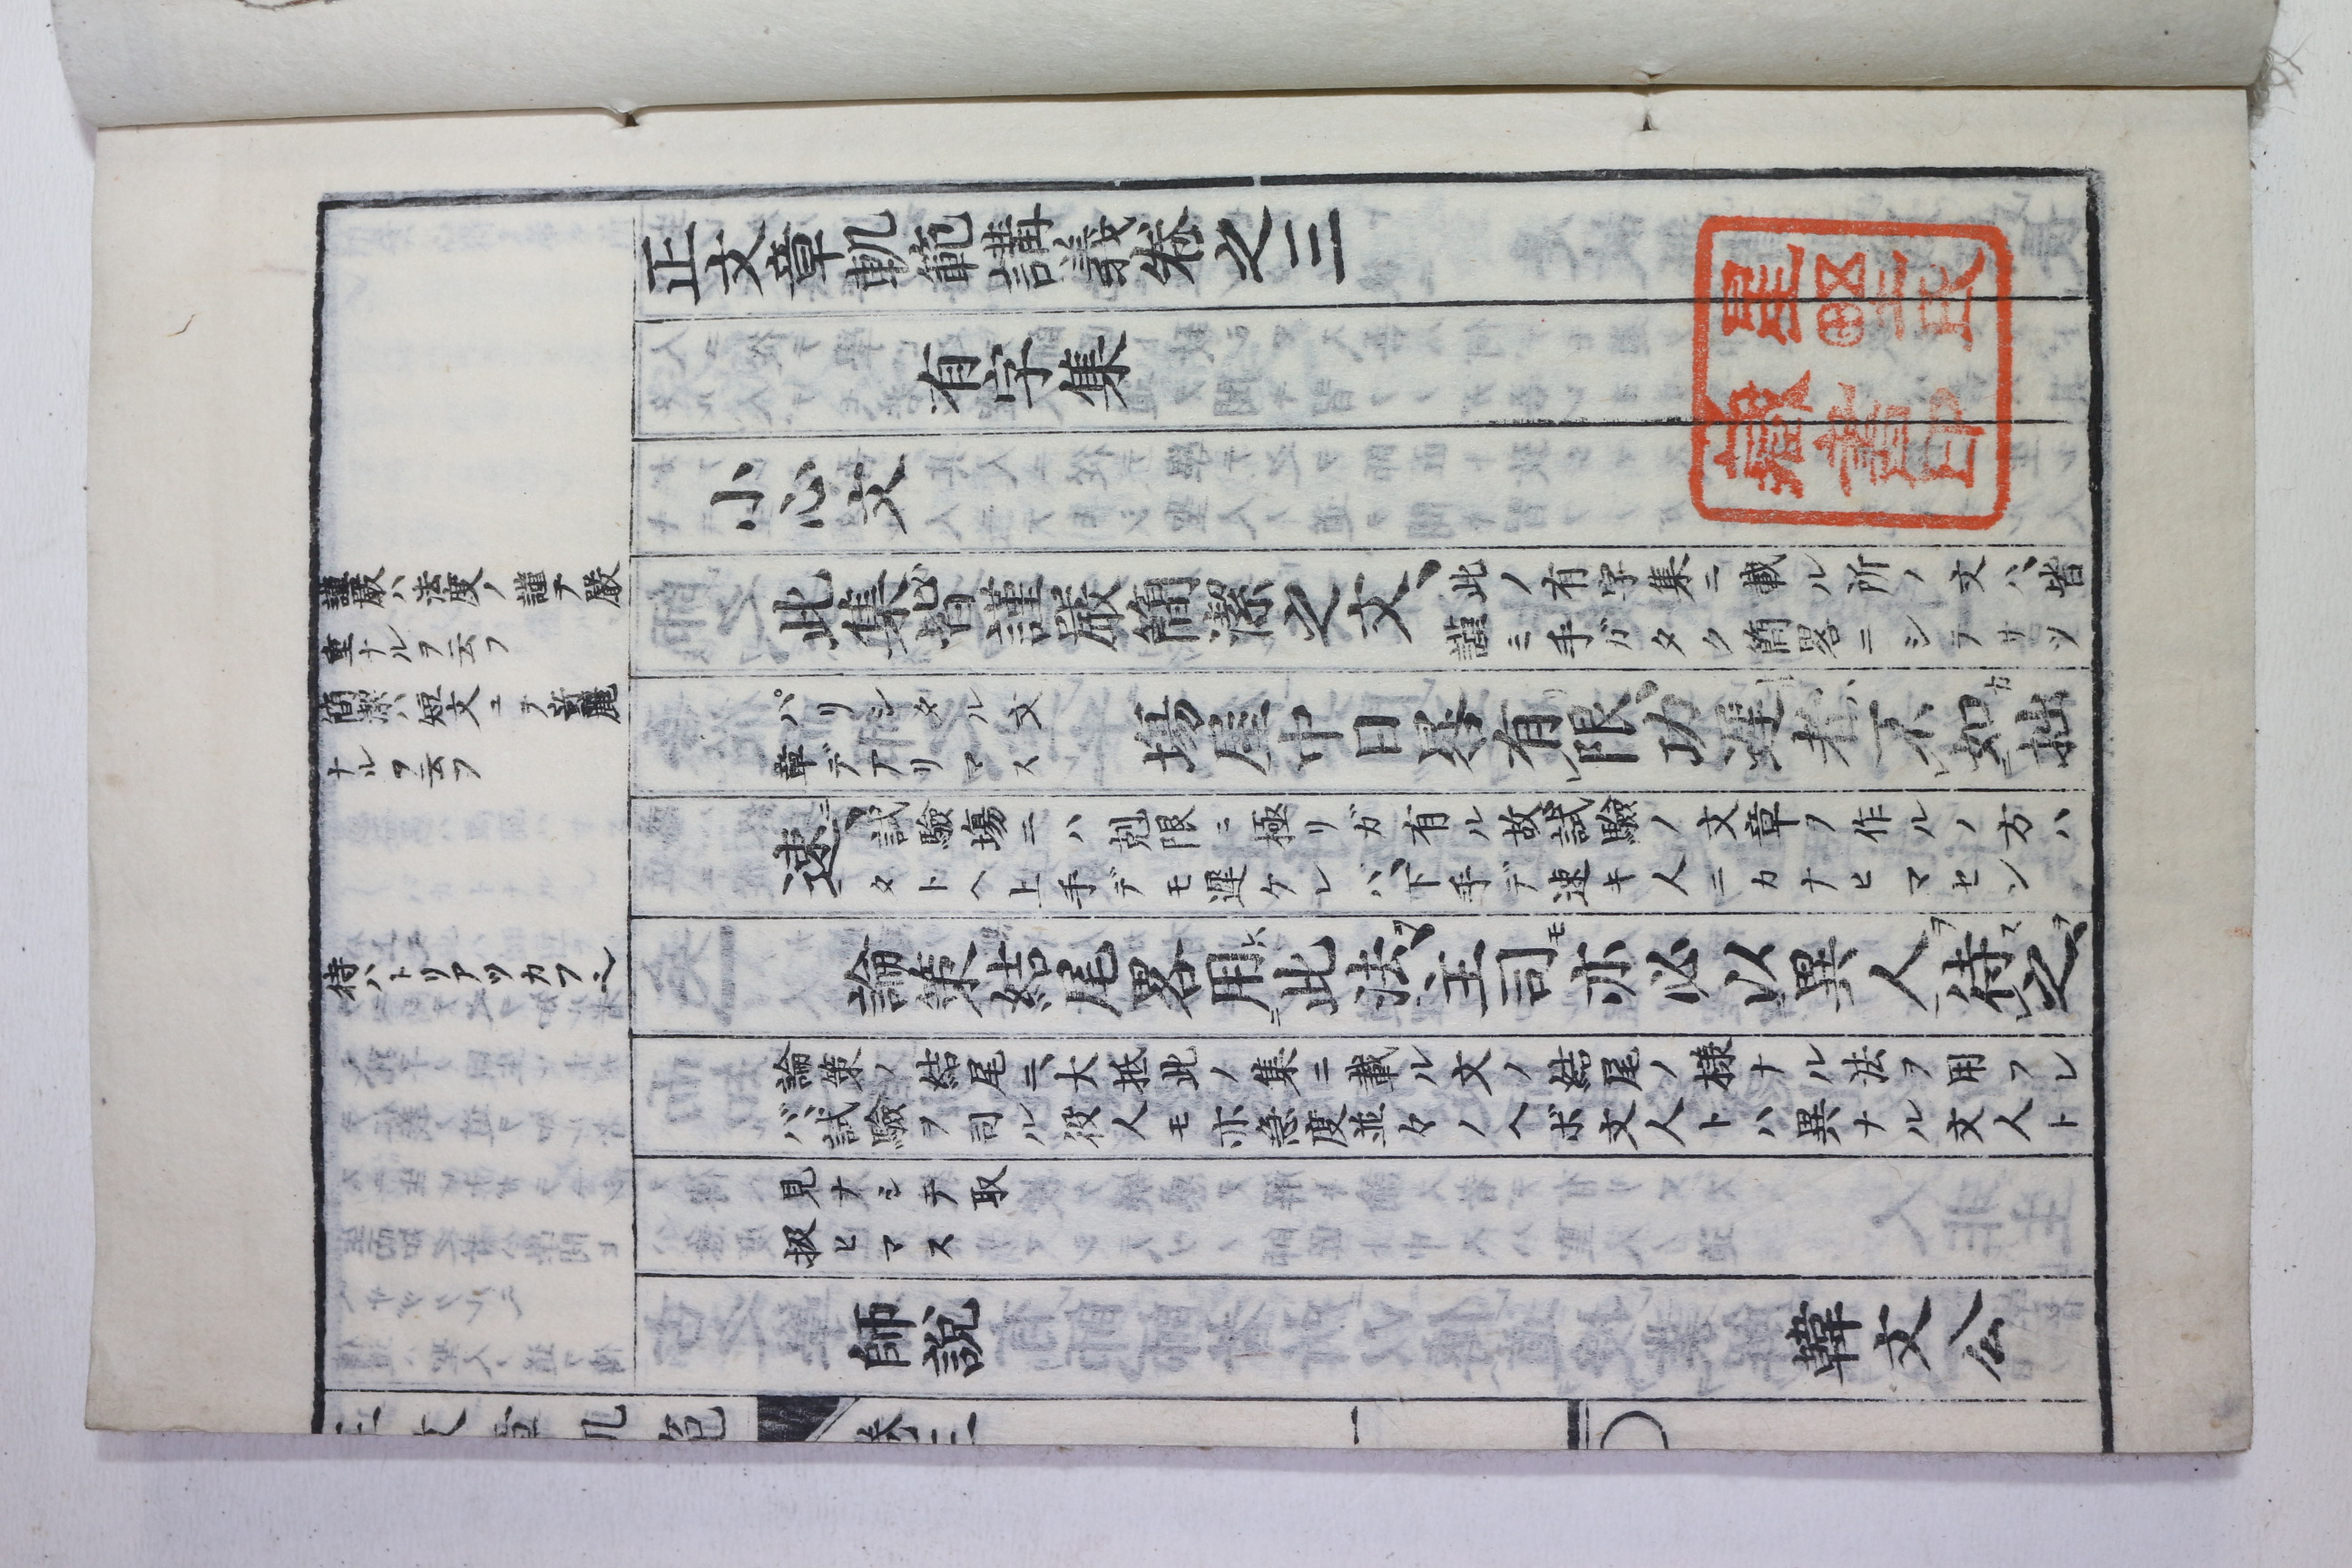 正文章軌範講義卷之三
有字集
小心文
此集皆謹嚴簡潔之文、
此ノ有字集ニ載ル所ノ文ハ、皆
謹ミ手ガタク簡畧ニシテサツ
パリシタル文
章デアリマス
塲屋中日晷有限、功遲者不如拙
速、
試驗塲ニハ剋限ニ極リガ有ル故、試驗ノ文章ヲ作ルノ方ハ
タトヘ上手デモ遲ケレバ、下手デ速キ人ニカナヒマセン
論策結尾畧用此法、主司亦必以異人待之、
論策ノ結尾ニ、大抵此ノ集ニ載ル文ノ結尾ノ樣ナル法ヲ用フレ
バ、試驗ヲ司ル役人モ亦急度並々ノヘボ文人トハ異ナル文人ト
見ナシテ取
扱ヒマス
師說
韓文公
謹嚴ハ法度ノ謹テ嚴
重ナルヲ云フ
簡潔ハ短文ニヲ竒麗
ナルヲ云フ
待ハトリアツカフ也
正文章軌範
卷三
一
星野氏
藏書印